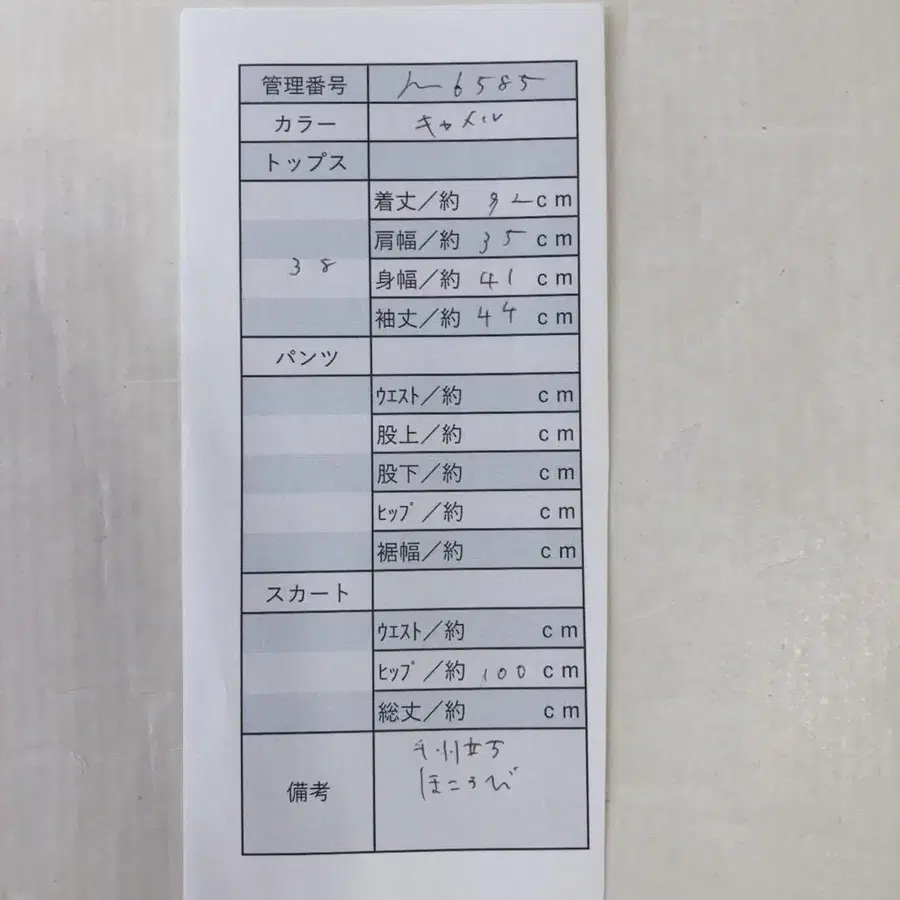 管理番号 m6585
カラー キャメル
トップス
38
着丈／約 92cm
肩幅／約 35 cm
身幅／約 41 cm
袖丈／約 44 cm
パンツ
ｳｴｽﾄ／約 cm
股上／約 cm
股下／約 cm
ﾋｯﾌﾟ／約 cm
裾幅／約 cm
スカート
ｳｴｽﾄ／約 cm
ﾋｯﾌﾟ／約 100 cm
総丈／約 cm
備考
ほころび